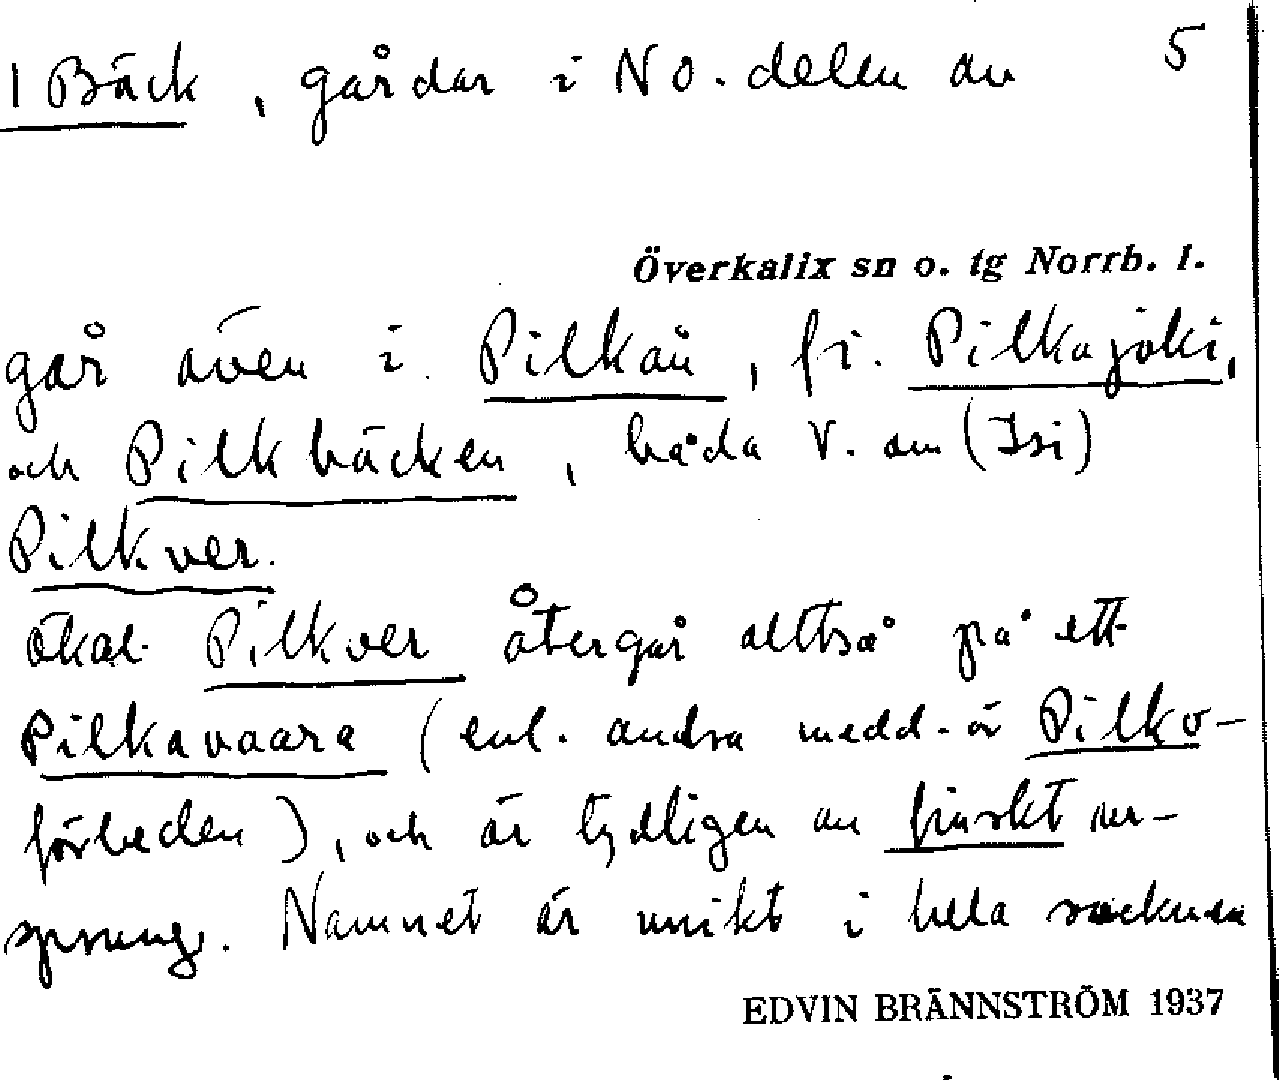 1 Bäck, gårdar i NO. delen av 5
Överkalix sn o. tg Norrb. l.
går även i Pilkån, fi. Pilkajoki,
och Pilkbäcken, båda V. om (Isi)
Pilkver.
ökal. Pilkver återgår alltså på ett
Pilkavaara (enl. andra medd. är Pilkv-
förleden), och är tydligen av finskt ur-
sprung. Namnet är unikt i hela socknen
EDVIN BRÄNNSTRÖM 1937